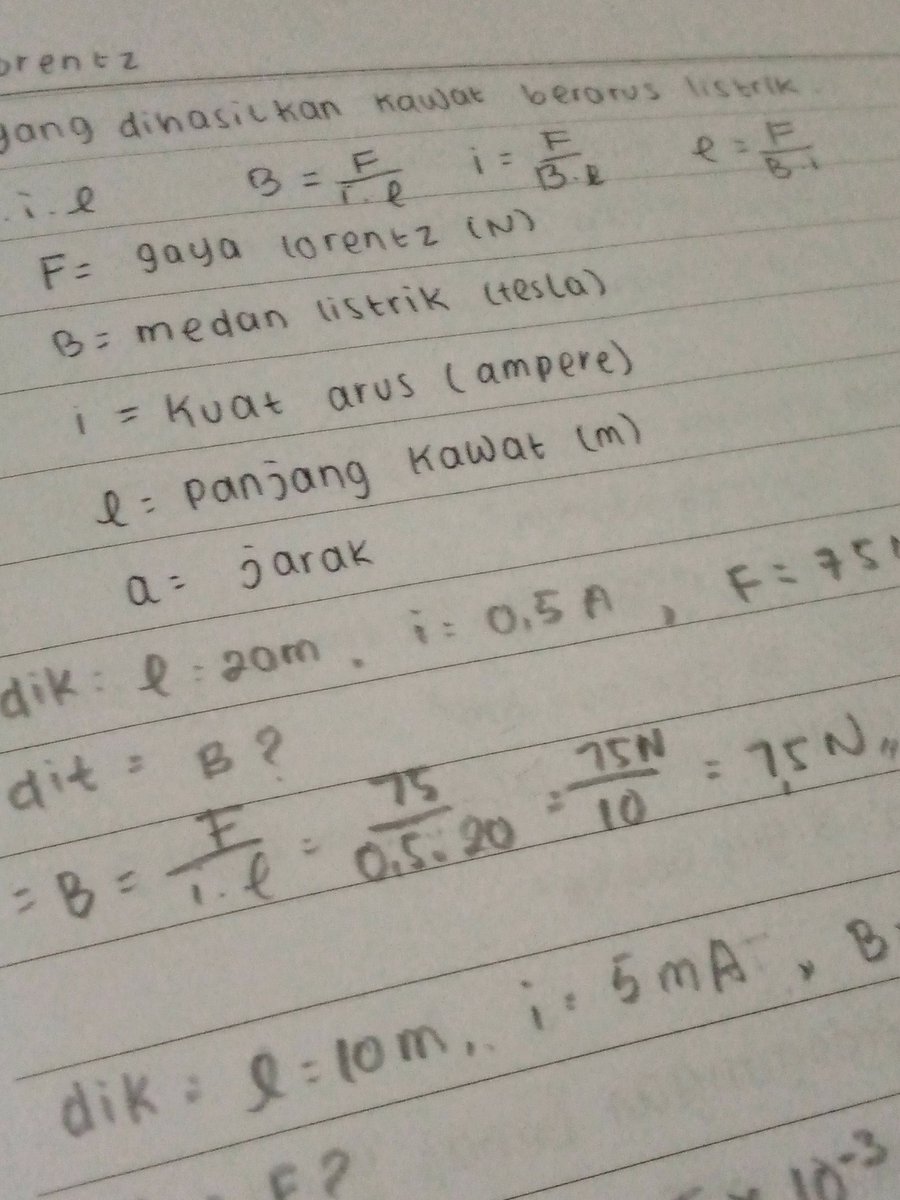 orentz
yang dihasilkan kawat berarus listrik.
. i . l B = F/i . l i = F/B . l l = F/B . i
F = gaya lorentz (N)
B = medan listrik (tesla)
i = kuat arus (ampere)
l = panjang kawat (m)
a = jarak
dik : l = 20m . i = 0,5 A , F = 75 N
dit = B ?
= B = F/i . l = 75/0,5 . 20 = 75N/10 = 7,5 N,,
dik = l = 10 m, i = 5 mA , B
F ?
10⁻³